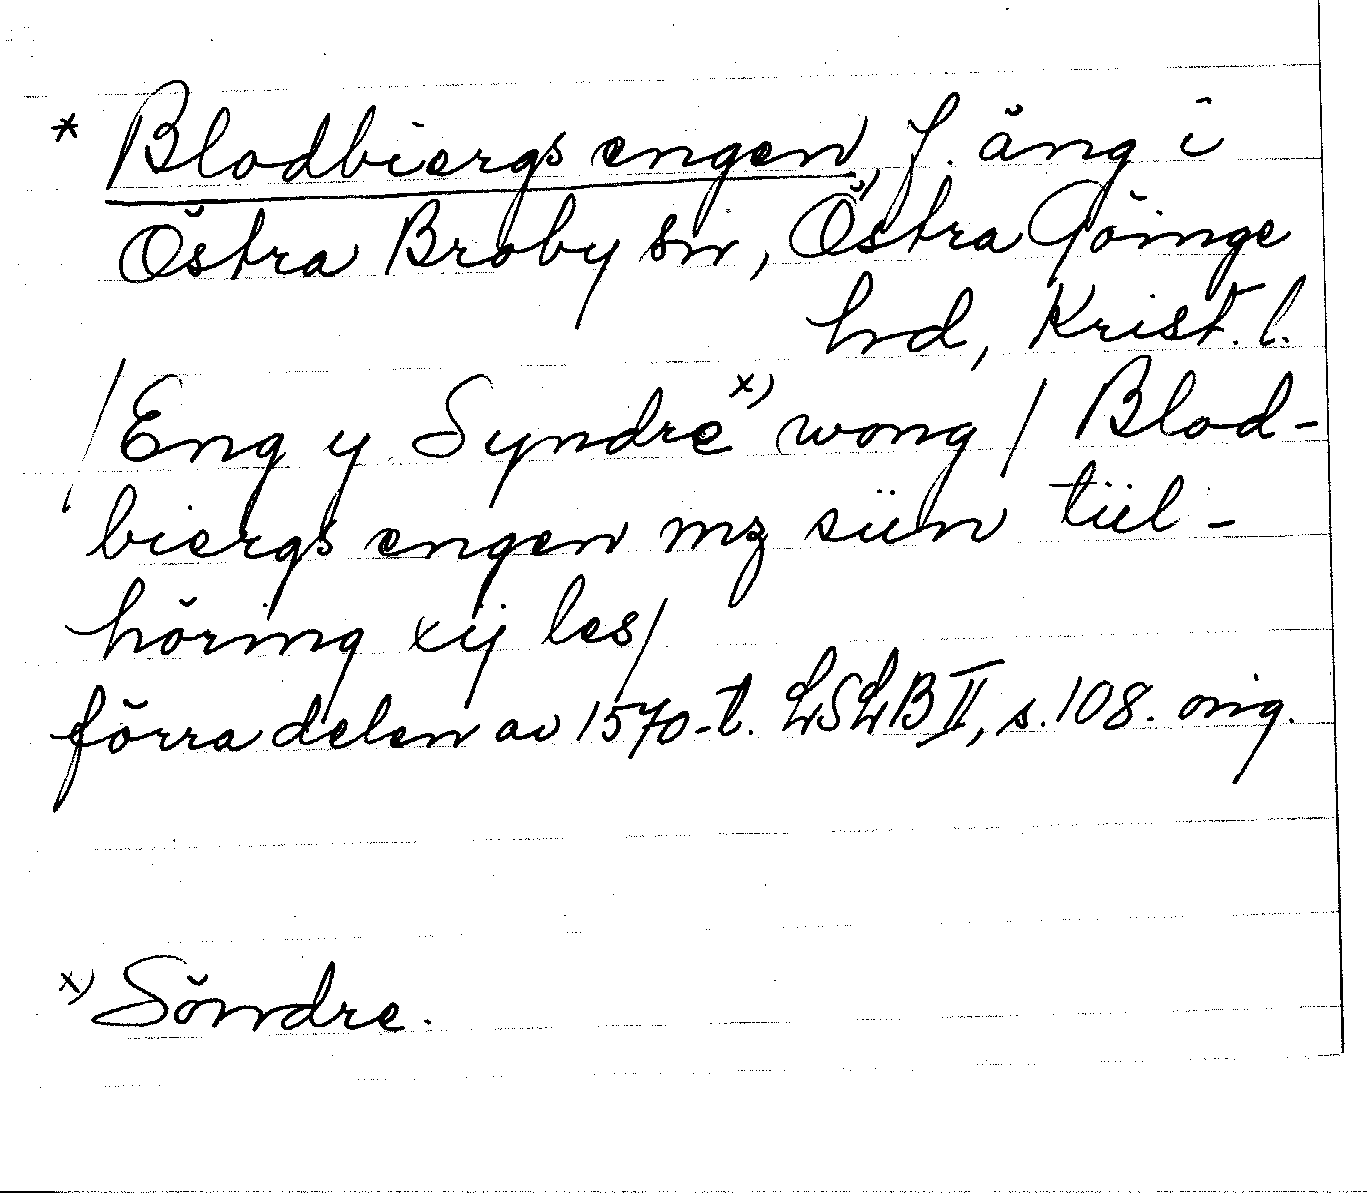 * Blodbiergs engen, f. äng i
Östra Broby sn, Östra Göinge
hrd, Krist. l.
/Eng y Syndre x) wong/ Blod-
biergs engen mz siin tiil-
höring xij les/
förra delen av 1570-t. LSLB II, s. 108. orig.
x) Söndre.